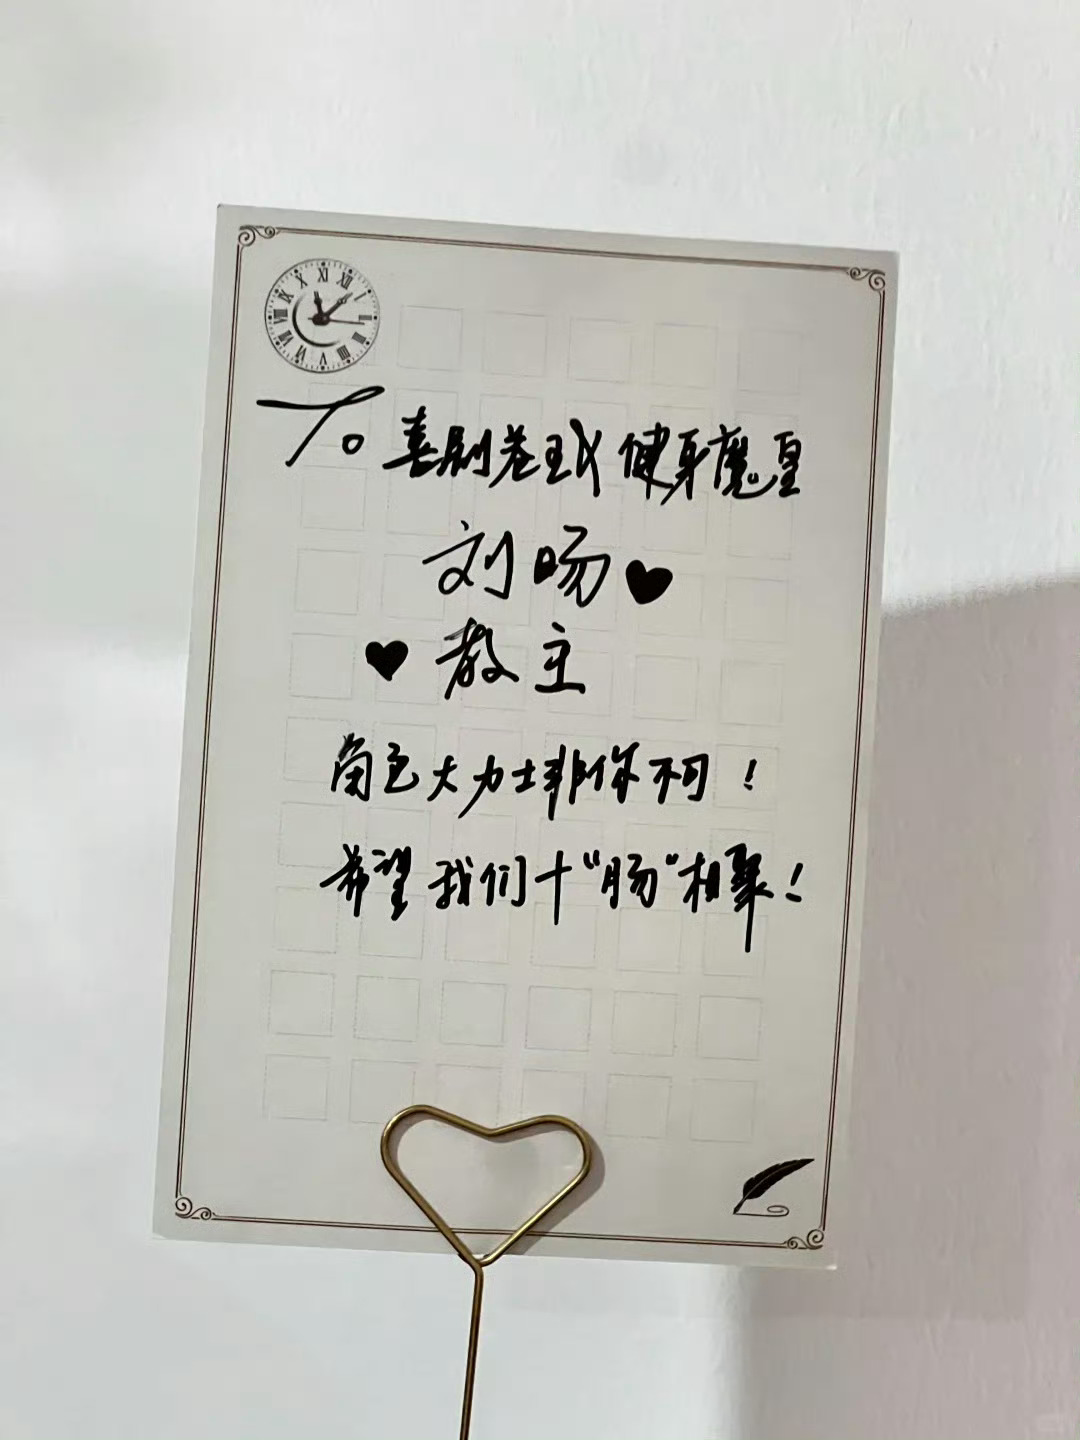 To 喜剧卷王 & 健身魔皇
刘旸
教主
角色大力士非你不可！
希望我们十“肠”相聚！